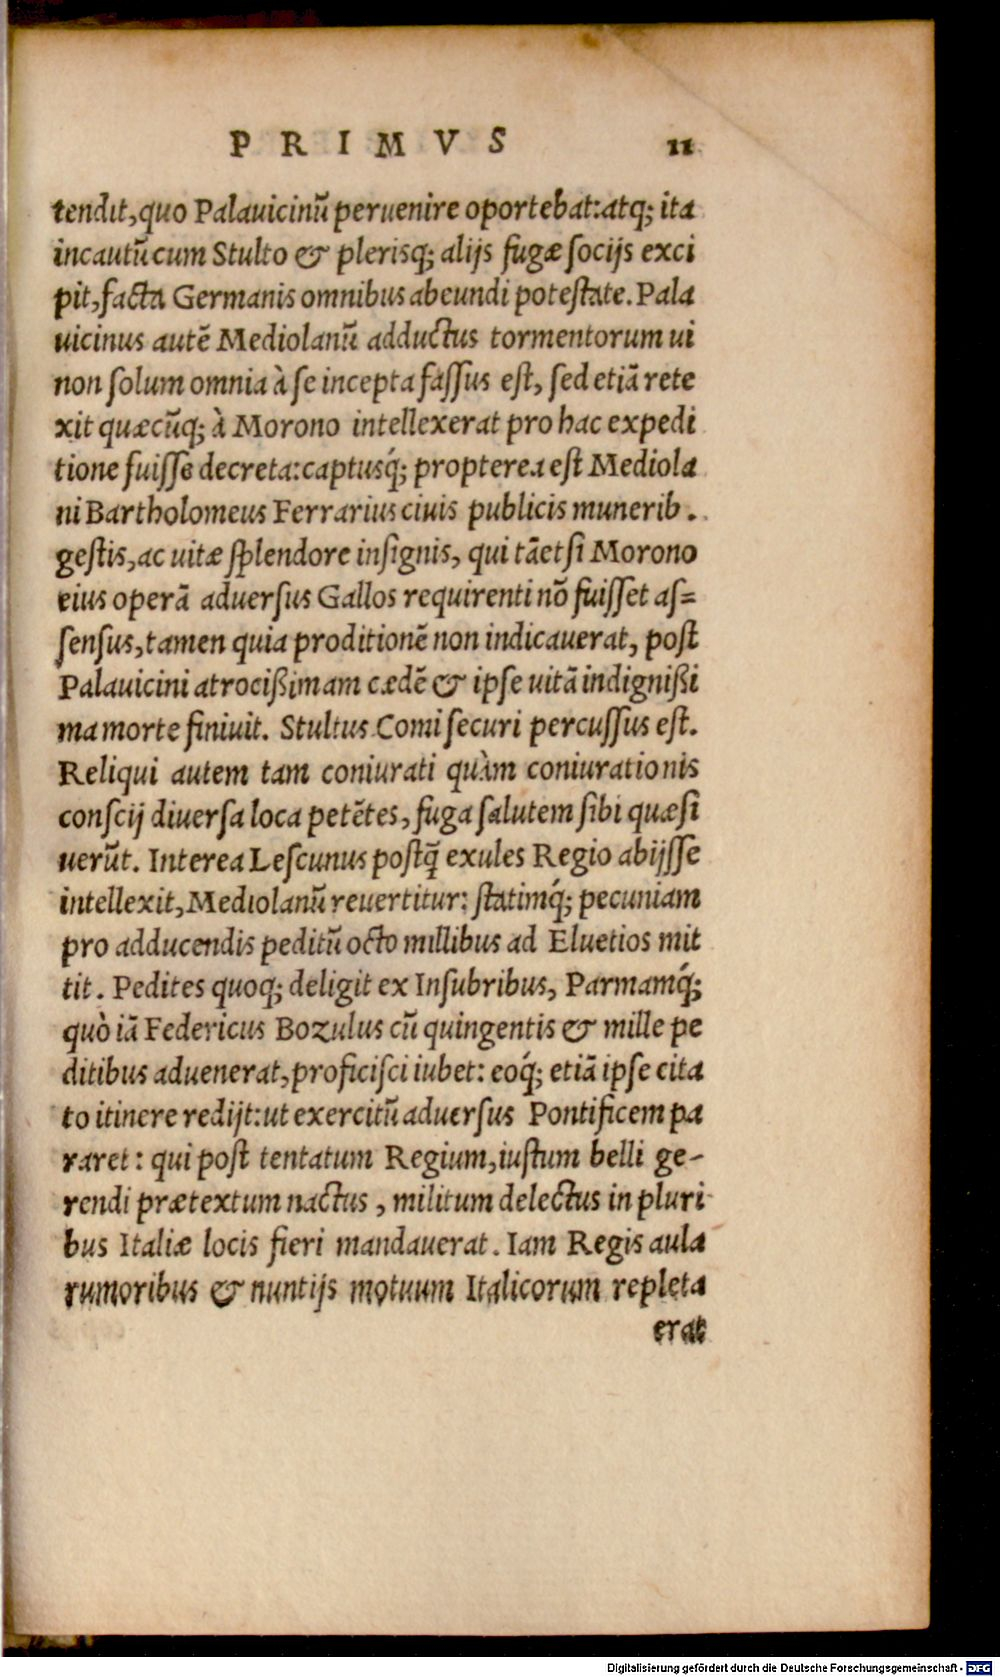 PRIMVS 11
tendit, quo Palauicinũ peruenire oportebat: atq; ita
incautũ cum Stulto & plerisq; alijs fugæ socijs exci
pit, facta Germanis omnibus abeundi potestate. Pala
uicinus autẽ Mediolanũ adductus tormentorum ui
non solum omnia à se incepta fassus est, sed etiã rete
xit quæcũq; à Morono intellexerat pro hac expedi
tione fuisse decreta: captusq́; propterea est Mediola
ni Bartholomeus Ferrarius ciuis publicis munerib.
gestis, ac uitæ splendore insignis, qui tãetsi Morono
eius operã aduersus Gallos requirenti nõ fuisset as=
sensus, tamen quia proditionẽ non indicauerat, post
Palauicini atrocißimam cædẽ & ipse uitã indignißi
ma morte finiuit. Stultus Comi securi percussus est.
Reliqui autem tam coniurati quàm coniurationis
conscij diuersa loca petẽtes, fuga salutem sibi quæsi
uerũt. Interea Lescunus postq̃ exules Regio abijsse
intellexit, Mediolanũ reuertitur: statimq́; pecuniam
pro adducendis peditũ octo millibus ad Eluetios mit
tit. Pedites quoq; deligit ex Insubribus, Parmamq́;
quò iã Federicus Bozulus cũ quingentis & mille pe
ditibus aduenerat, proficisci iubet: eoq́; etiã ipse cita
to itinere redijt: ut exercitũ aduersus Pontificem pa
raret: qui post tentatum Regium, iustum belli ge-
rendi prætextum nactus, militum delectus in pluri
bus Italiæ locis fieri mandauerat. Iam Regis aula
rumoribus & nuntijs motuum Italicorum repleta
erat
Digitalisierung gefördert durch die Deutsche Forschungsgemeinschaft - DFG